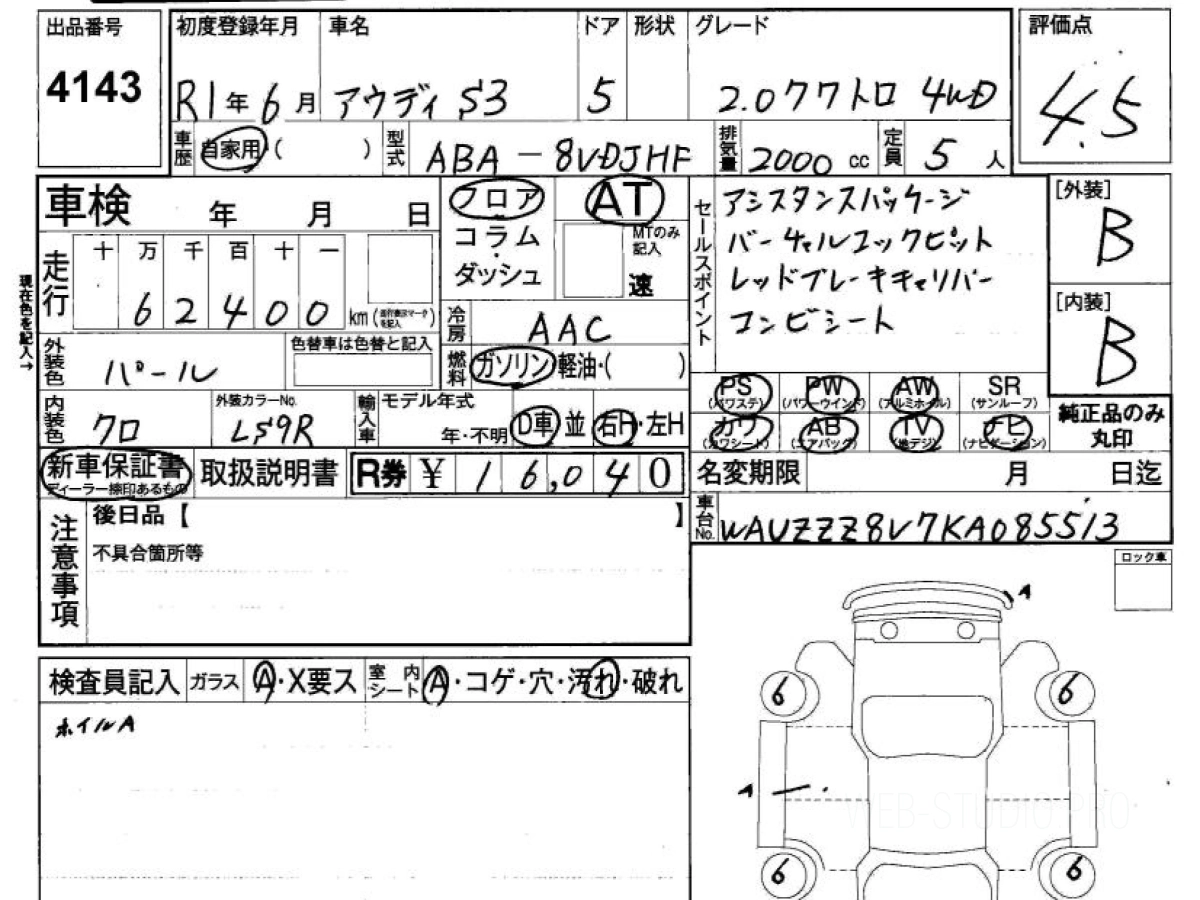 出品番号
4143
初度登録年月 車名 ドア 形状 グレード
R1年6月 アウディ S3 5 2.0クワトロ 4WD
評価点
4.5
車歴 自家用 ( ) 型式 ABA-8VDJHF 排気量 2000 cc 定員 5 人
車検 年 月 日
フロア AT
コラム
・
ダッシュ
MTのみ記入
速
セールスポイント
アシスタンスパッケージ
バーチャルコックピット
レッドブレーキキャリパー
コンビシート
[外装]
B
[内装]
B
現在色を記入→
走行 十 万 千 百 十 一
6 2 4 0 0 km
冷房 AAC
外装色 パール 色替車は色替と記入
燃料 ガソリン・軽油・( )
PS (パワステ) PW (パワーウインド) AW (アルミホイル) SR (サンルーフ)
カワ (カワシート) AB (エアバッグ) TV (地デジ) ナビ (ナビゲーション)
純正品のみ
丸印
内装色 クロ 外装カラーNo. LS9R 輸入車 モデル年式
年・不明 D車 並 右H・左H
新車保証書 取扱説明書 R券 ¥ 16,040
ディーラー捺印あるもの
名変期限 月 日迄
車台No. WAUZZZ8V7KA085513
注意事項 後日品【 】
不具合箇所等
ロック車
検査員記入 ガラス A・X要ス 室内シート A・コゲ・穴・汚れ・破れ
ホイルA
A
6 6
A
6 6
WEB-STUDIO.PRO